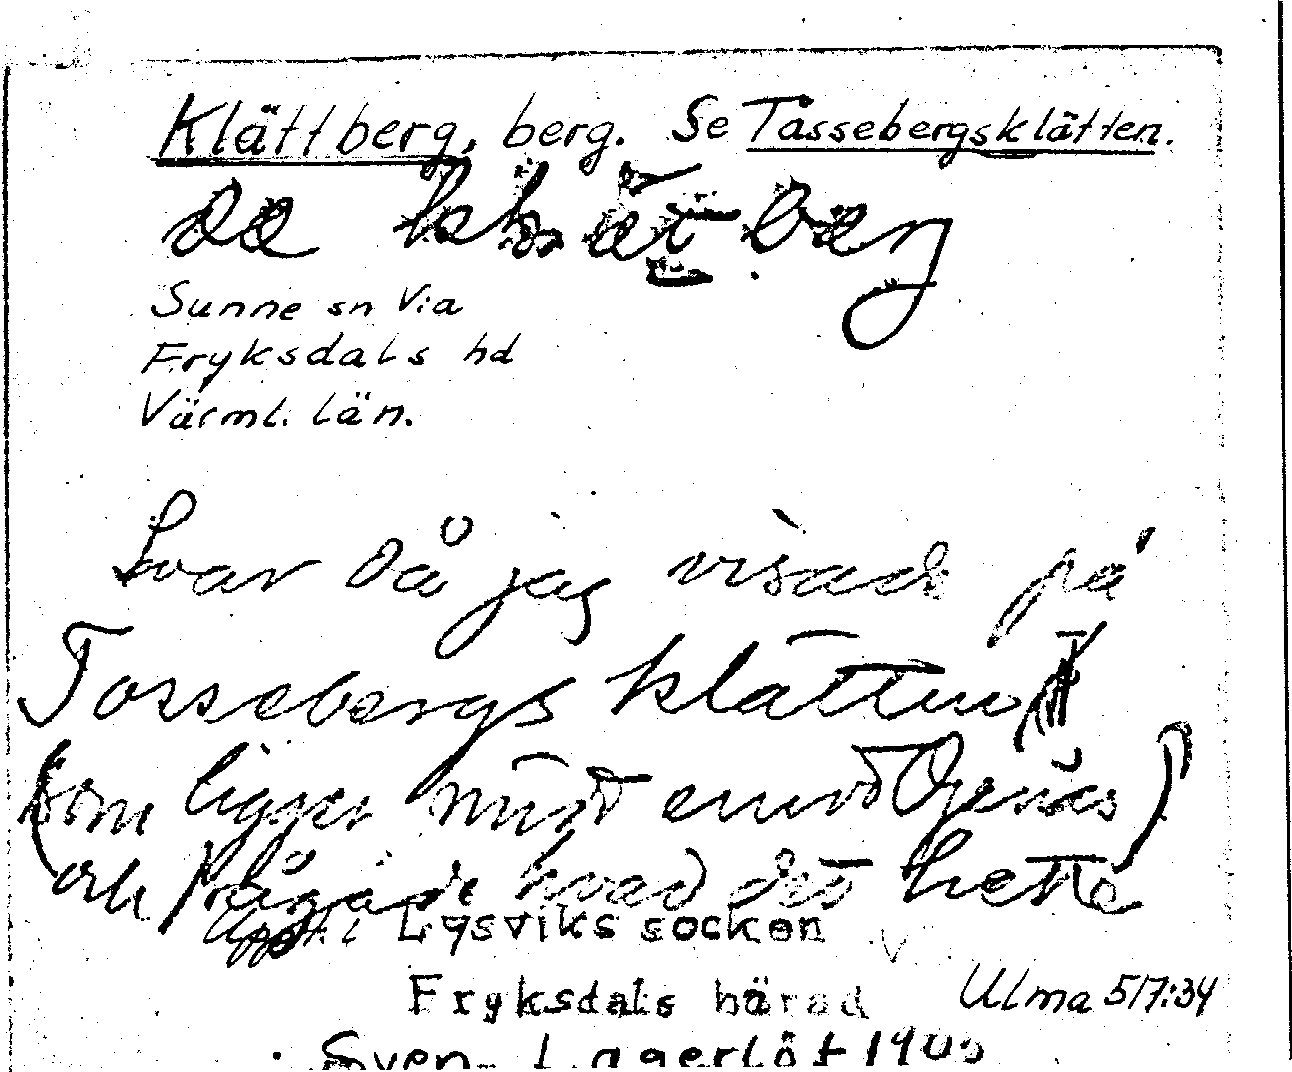 Klättberg, berg. Se Tossebergsklätten.
Sunne sn Via
Fryksdals hd
Värml. län.
Svar då jag visade på
Tossebergs klätten
(som ligger midt emot Ojenäs)
och frågade hvad det hette
Uppt. i Lysviks socken
Fryksdals härad Ulma 517:34
Sven Lagerlöf 1905